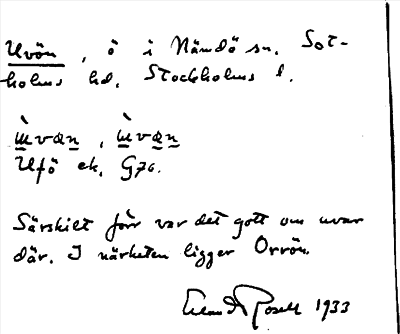 Uvön, ö i Nämdö sn. Sot-
holms hd. Stockholms l.
ùvan, ùvan
Ufö ek. G7c.
Särskilt förr var det gott om uvar
där. I närheten ligger Orrön.
Erland Rosell 1933